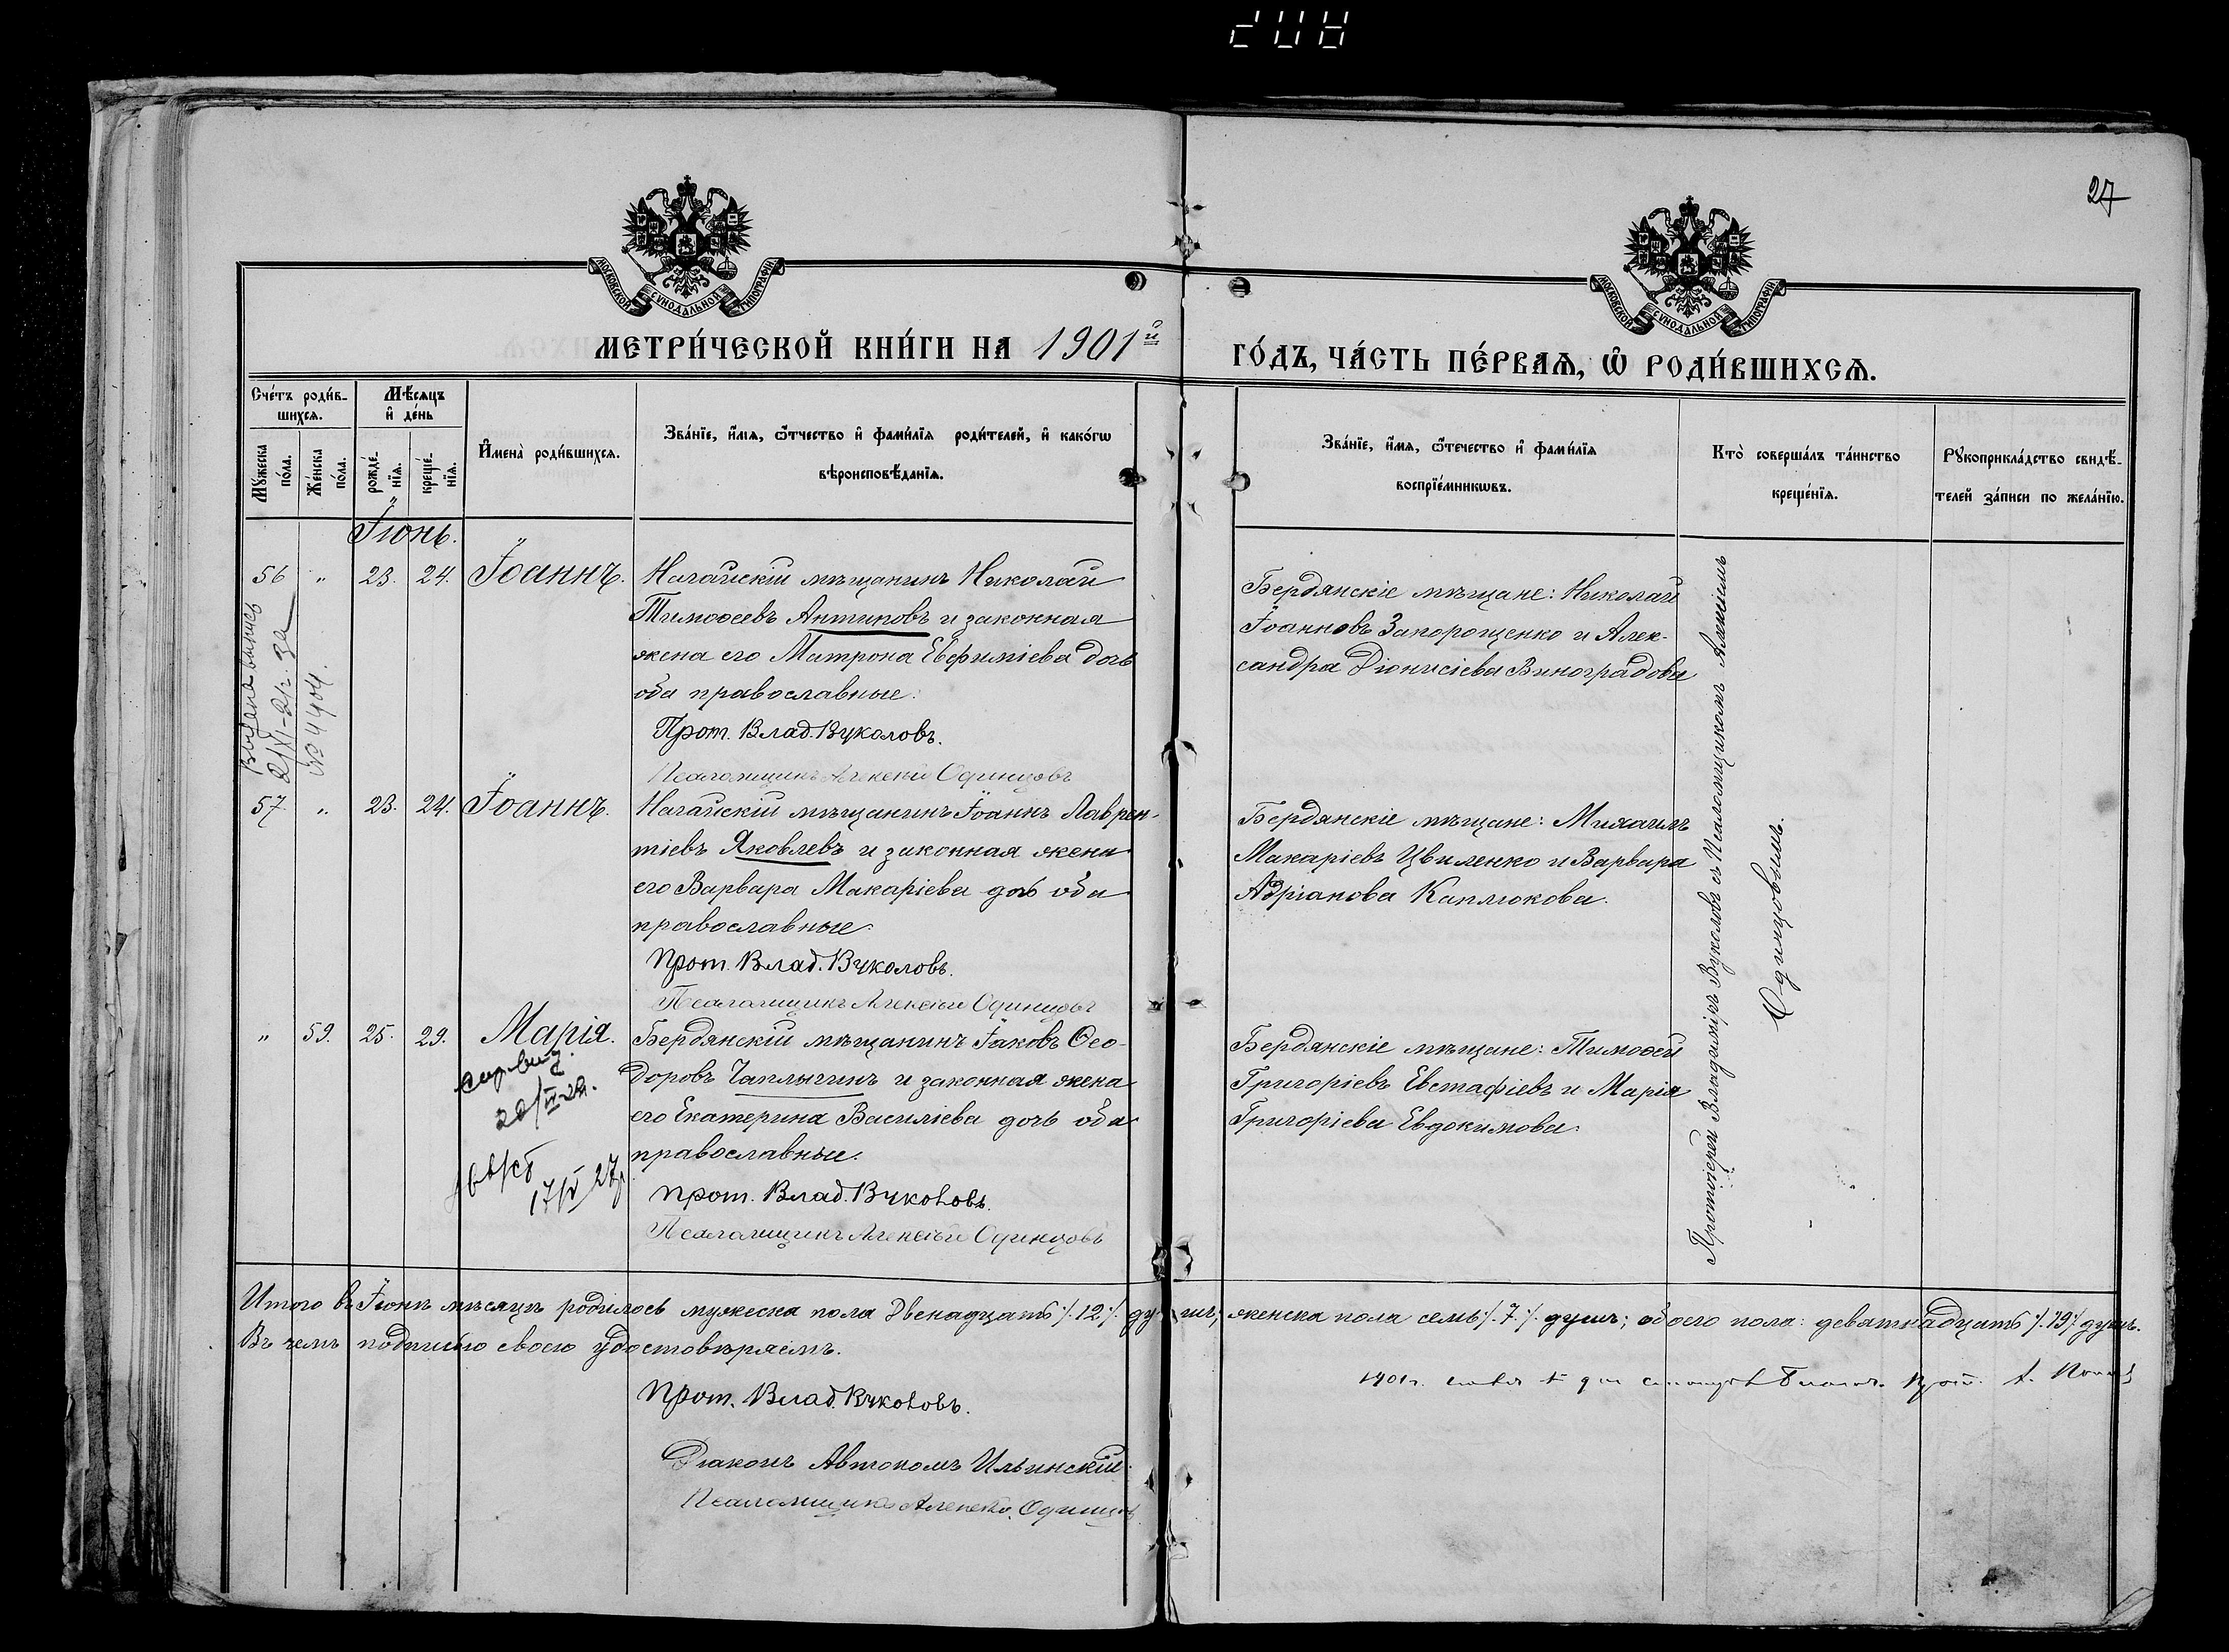 208
27
МОСКОВСКОЙ СУНОДАЛЬНОЙ ТИПОГРАФІИ
МОСКОВСКОЙ СУНОДАЛЬНОЙ ТИПОГРАФІИ
МЕТРИ́ЧЕСКОЙ КНИ́ГИ НА 1901й ГО́ДЪ, ЧА́СТЬ ПЕ́РВАѦ, Ѡ РОДИ́ВШИХСѦ.
Сче́тъ роди́в-
шихсѧ.
Мꙋжеска по́ла.
Же́нска по́ла.
Мѣ́сѧцъ
и҆ де́нь
рожде́-нїѧ.
креще́-нїѧ.
И҆мена̀ роди́вшихсѧ.
Зва́нїе, и҆́мѧ, ѻ҆́тчество и҆ фами́лїѧ роди́телей, и҆ како́гѡ
вѣроисповѣ́данїѧ.
Зва́нїе, и҆́мѧ, ѻ҆те́чество и҆ фами́лїѧ
воспрїе́мникѡвъ.
Кто̀ соверша́лъ та́инство
креще́нїѧ.
Рꙋкоприкла́дство свидѣ́-
телей за́писи по жела́нїю.
Іюнь.
56 " 23. 24. Іоаннъ. Ногайскій мѣщанинъ Николай
Тимоѳеевъ Антиповъ и законная
жена его Матрона Евфиміева дочь
оба православные.
Прот. Влад. Вуколовъ.
Псаломщикъ Алексѣй Одинцовъ
Бердянскіе мѣщане: Николай
Іоанновъ Запорощенко и Алек-
сандра Діонисіева Виноградова
Выдана выпись
2/XI-21г. за
№ 4904.
57. " 23. 24. Іоаннъ. Ногайскій мѣщанинъ Іоаннъ Лаврен-
тіевъ Яковлевъ и законная жена
его Варвара Макаріева дочь оба
православные.
Прот. Влад. Вуколовъ.
Псаломщикъ Алексѣй Одинцовъ
Бердянскіе мѣщане: Михаилъ
Макаріевъ Цвиленко и Варвара
Адріанова Каплюкова.
" 59. 25. 29. Марія. Бердянскій мѣщанинъ Іаковъ Ѳео-
доровъ Чаплыгинъ и законная жена
его Екатерина Василіева дочь оба
православные.
Прот. Влад. Вуколовъ.
Псаломщикъ Алексѣй Одинцовъ
17/V 27г.
Бердянскіе мѣщане: Тимоѳей
Григоріевъ Евстафіевъ и Марія
Григоріева Евдокимова.
Протоіерей Владиміръ Вуколовъ съ Псаломщикомъ Алексѣемъ
Одинцовымъ.
Итого въ Іюнѣ мѣсяцѣ родилось мужеска пола двенадцать ./.12./. душъ; женска пола семь ./.7./. душъ; обоего пола: девятнадцать ./.19./. душъ.
Въ чемъ подписью своею удостовѣряемъ.
Прот. Влад. Вуколовъ.
Діаконъ Автономъ Ильинскій.
Псаломщикъ Алексѣй Одинцовъ
1901г.